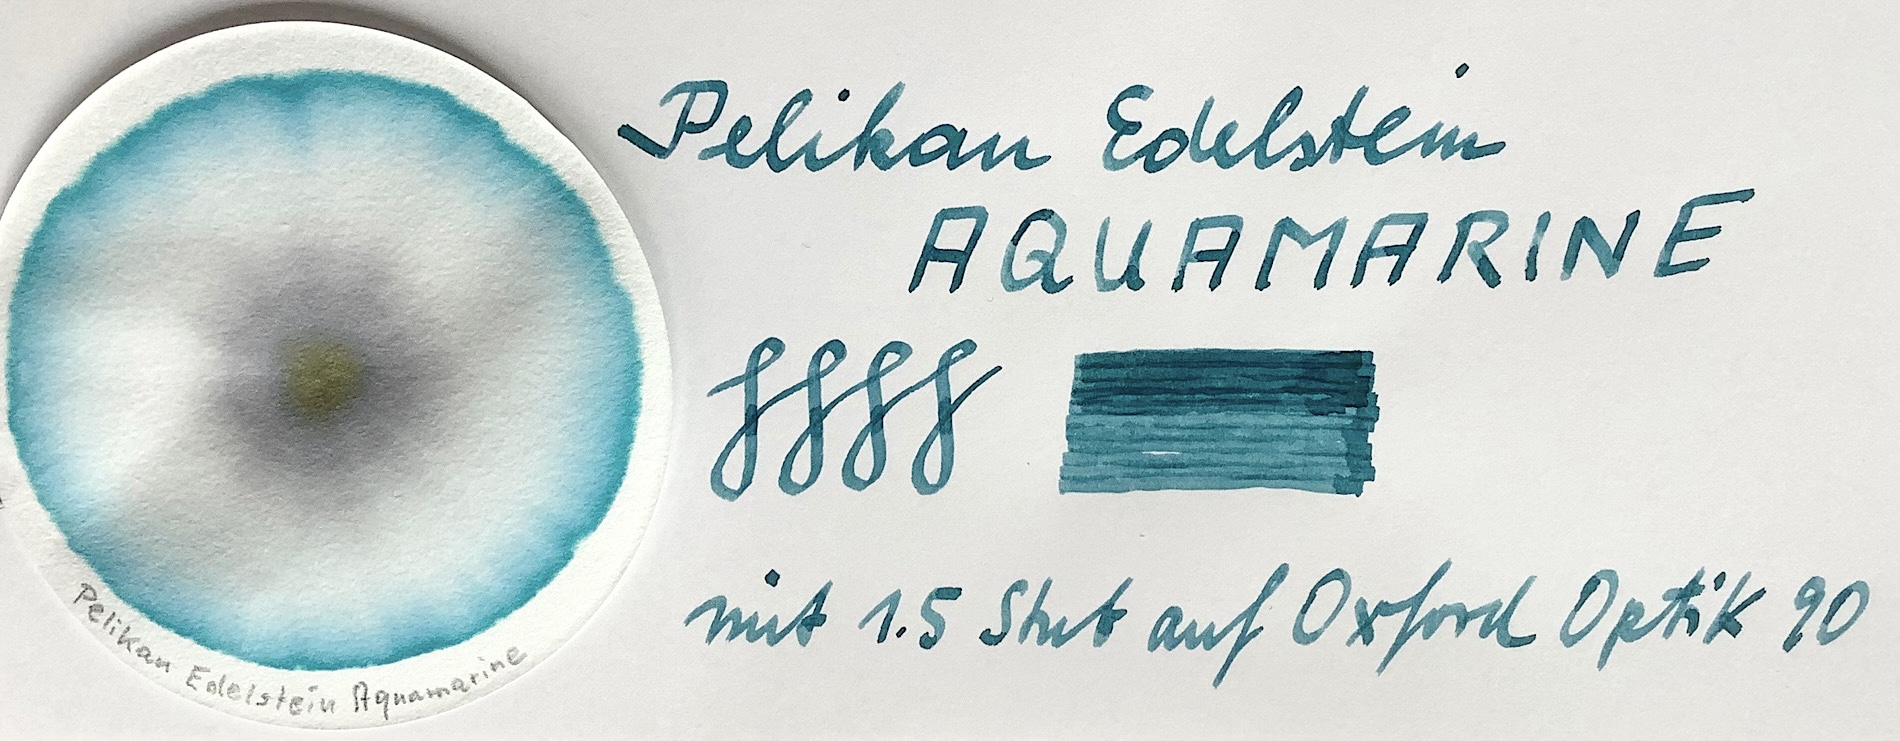 Pelikan Edelstein
AQUAMARINE
mit 1.5 Stub auf Oxford Optik 90
Pelikan Edelstein Aquamarine